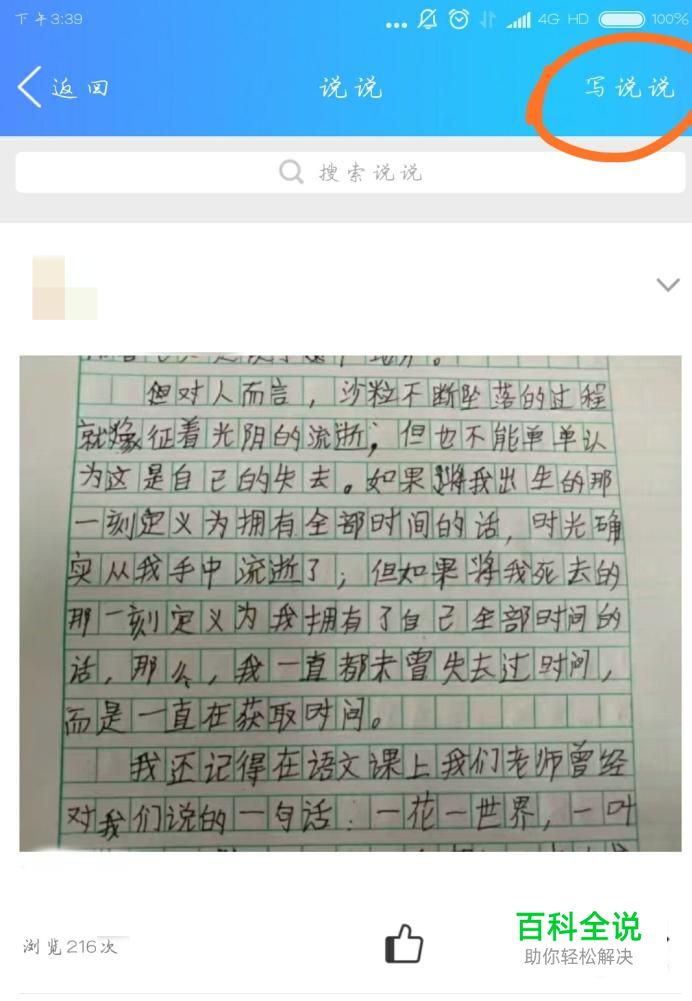 下午3:39
... 4G HD 100%
返回 说说 写说说
搜索说说
但对人而言，沙粒不断坠落的过程
就像征着光阴的流逝；但也不能单单认
为这是自己的失去。如果将我出生的那
一刻定义为拥有全部时间的话，时光确
实从我手中流逝了；但如果将我死去的
那一刻定义为我拥有了自己全部时间的
话，那么，我一直都未曾失去过时间，
而是一直在获取时间。
我还记得在语文课上我们老师曾经
对我们说的一句话：一花一世界，一叶
浏览216次
百科全说
助你轻松解决